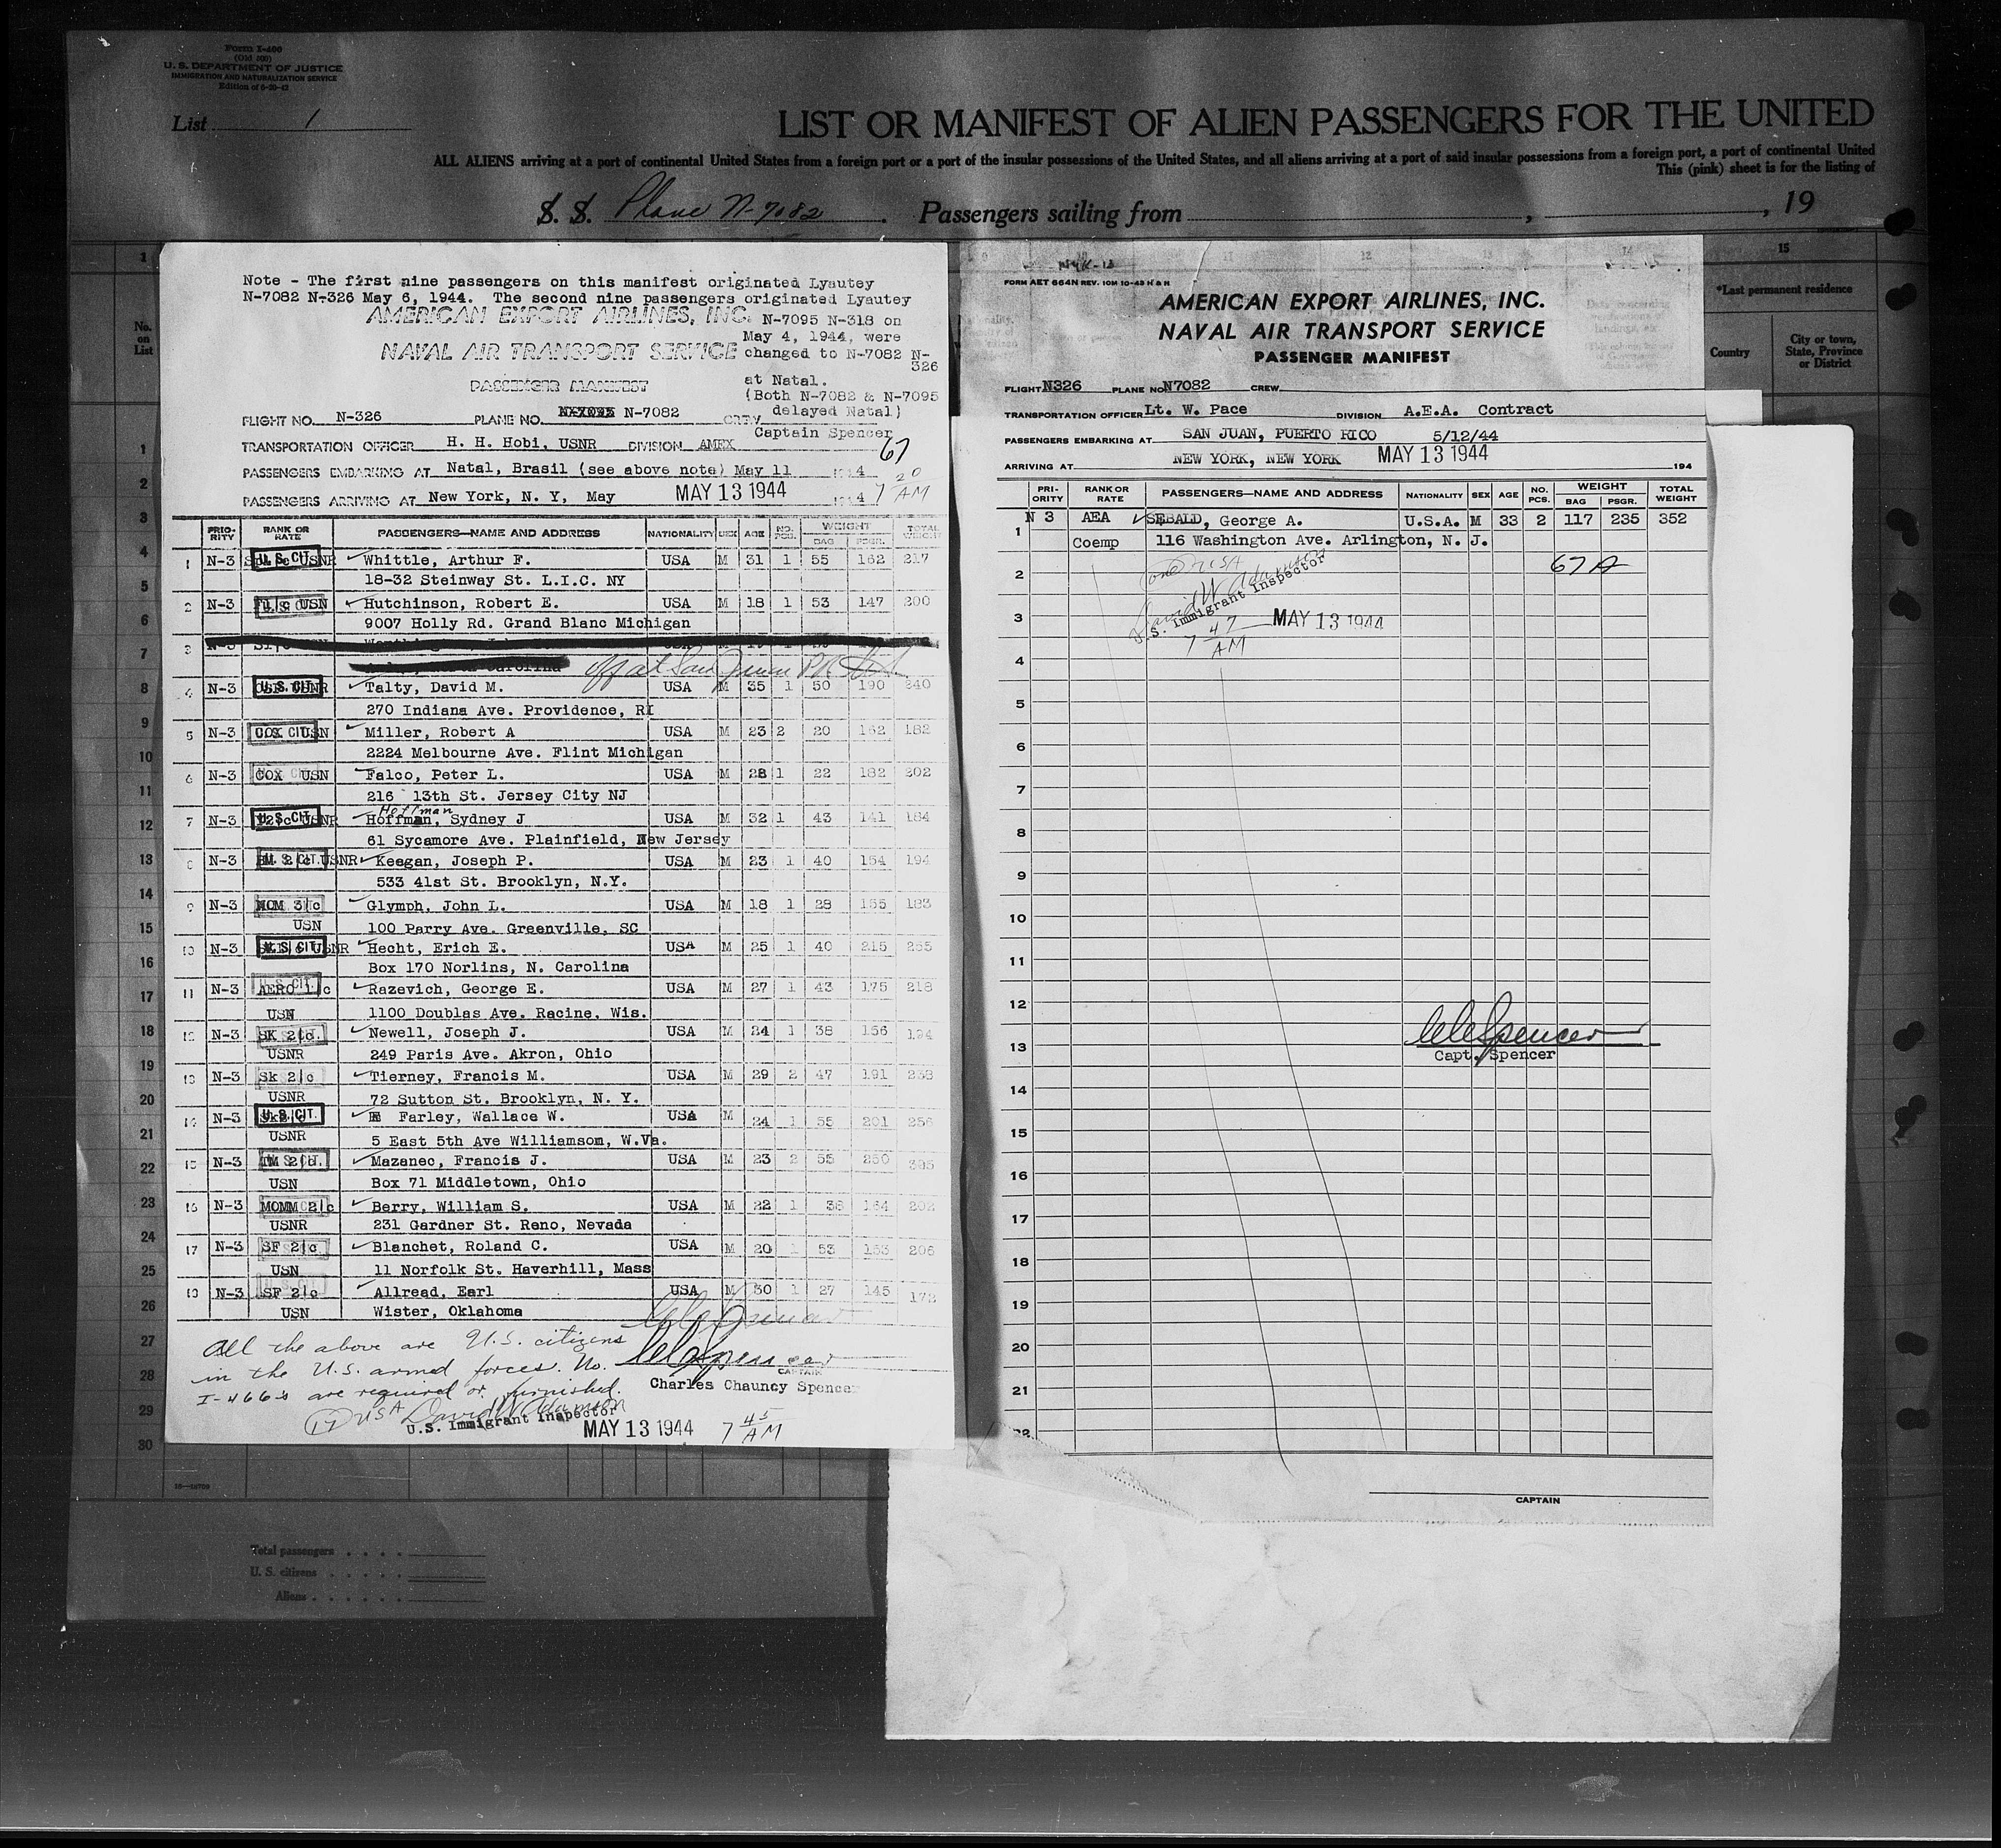 Form I-400
(Old 500)
U. S. DEPARTMENT OF JUSTICE
IMMIGRATION AND NATURALIZATION SERVICE
Edition of 6-20-42
List 1
LIST OR MANIFEST OF ALIEN PASSENGERS FOR THE UNITED
ALL ALIENS arriving at a port of continental United States from a foreign port or a port of the insular possessions of the United States, and all aliens arriving at a port of said insular possessions from a foreign port, a port of continental United
This (pink) sheet is for the listing of
S. S. Plane N-7082. Passengers sailing from , , 19
Note - The first nine passengers on this manifest originated Lyautey
N-7082 N-326 May 6, 1944. The second nine passengers originated Lyautey
AMERICAN EXPORT AIRLINES, INC. N-7095 N-318 on
May 4, 1944, were
NAVAL AIR TRANSPORT SERVICE changed to N-7082 N-
326
PASSENGER MANIFEST at Natal.
(Both N-7082 & N-7095
FLIGHT NO. N-326 PLANE NO. N-7095 N-7082 CREW delayed Natal)
Captain Spencer
TRANSPORTATION OFFICER H. H. Hobi, USNR DIVISION AMEX 67
PASSENGERS EMBARKING AT Natal, Brasil (see above note) May 11 194 4
PASSENGERS ARRIVING AT New York, N. Y, May MAY 13 1944 194 4 7 20 AM
PRIO-RITY RANK OR RATE PASSENGERS—NAME AND ADDRESS NATIONALITY SEX AGE NO. PCS. WEIGHT BAG PSGR. TOTAL WEIGHT
1 N-3 U.S. CIT. USNR Whittle, Arthur F. USA M 31 1 55 162 217
18-32 Steinway St. L.I.C. NY
2 N-3 USN Hutchinson, Robert E. USA M 18 1 53 147 200
9007 Holly Rd. Grand Blanc Michigan
3 N-3 S1/c
Carolina off at San Juan PR
4 N-3 U.S. CIT. USNR Talty, David M. USA M 35 1 50 190 240
270 Indiana Ave. Providence, RI
5 N-3 COX USN Miller, Robert A USA M 23 2 20 162 182
2224 Melbourne Ave. Flint Michigan
6 N-3 COX USN Falco, Peter L. USA M 28 1 22 182 202
216 13th St. Jersey City NJ
Hoffman
7 N-3 U.S. CIT. USNR Hoffman, Sydney J USA M 32 1 43 141 184
61 Sycamore Ave. Plainfield, New Jersey
8 N-3 U.S. CIT. USNR Keegan, Joseph P. USA M 23 1 40 154 194
533 41st St. Brooklyn, N.Y.
9 N-3 MOM 3/c Glymph, John L. USA M 18 1 28 155 183
USN 100 Parry Ave. Greenville, SC
10 N-3 U.S. CIT. USNR Hecht, Erich E. USA M 25 1 40 215 255
Box 170 Norlins, N. Carolina
11 N-3 AERO 1/c Razevich, George E. USA M 27 1 43 175 218
USN 1100 Doublas Ave. Racine. Wis.
12 N-3 SK 2/c Newell, Joseph J. USA M 24 1 38 156 194
USNR 249 Paris Ave. Akron, Ohio
13 N-3 Sk 2/c Tierney, Francis M. USA M 29 2 47 191 238
USNR 72 Sutton St. Brooklyn, N. Y.
14 N-3 U.S. CIT. Farley, Wallace W. USA M 24 1 55 201 256
USNR 5 East 5th Ave Williamsom, W.Va.
15 N-3 TM 2/c Mazanec, Francis J. USA M 23 2 55 250 305
USN Box 71 Middletown, Ohio
16 N-3 MOMM 2/c Berry, William S. USA M 22 1 38 164 202
USNR 231 Gardner St. Reno, Nevada
17 N-3 SF 2/c Blanchet, Roland C. USA M 20 1 53 153 206
USN 11 Norfolk St. Haverhill, Mass
18 N-3 SF 2/c Allread, Earl USA M 30 1 27 145 172
USN Wister, Oklahoma
All the above are U.S. citizens
in the U.S. armed forces. No.
I-466s are required or furnished.
CAPTAIN
Charles Chauncy Spencer
(17) USA David W Adamson
U.S. Immigrant Inspector
MAY 13 1944 7 45 AM
FORM AET 664N REV. 10M 10-43 H & H
AMERICAN EXPORT AIRLINES, INC.
NAVAL AIR TRANSPORT SERVICE
PASSENGER MANIFEST
FLIGHT N326 PLANE NO. N7082 CREW
TRANSPORTATION OFFICER Lt. W. Pace DIVISION A.E.A. Contract
PASSENGERS EMBARKING AT SAN JUAN, PUERTO RICO 5/12/44
ARRIVING AT NEW YORK, NEW YORK MAY 13 1944 194
PRI-ORITY RANK OR RATE PASSENGERS—NAME AND ADDRESS NATIONALITY SEX AGE NO. PCS. WEIGHT BAG PSGR. TOTAL WEIGHT
1 N 3 AEA SEBALD, George A. U.S.A. M 33 2 117 235 352
Coemp 116 Washington Ave. Arlington, N. J.
2 67 A
(one) USA
David W Adamson
U.S. Immigrant Inspector
3 MAY 13 1944
7 47 AM
4
5
6
7
8
9
10
11
12
CCSpencer
13 Capt. Spencer
14
15
16
17
18
19
20
21
22
CAPTAIN
15
*Last permanent residence
Country
City or town, State, Province or District
No. on List
1
2
3
4
5
6
7
8
9
10
11
12
13
14
15
16
17
18
19
20
21
22
23
24
25
26
27
28
29
30
Total passengers
U. S. citizens
Aliens